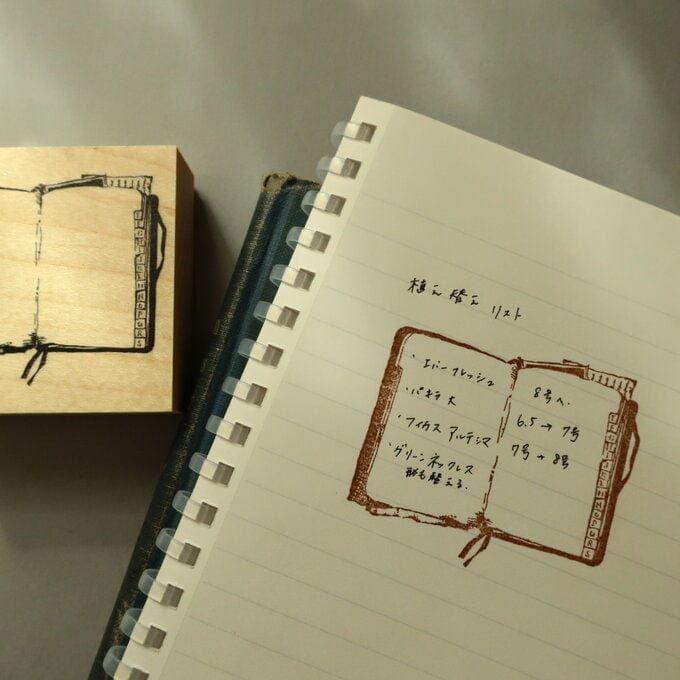 植え替え リスト
・エバーフレッシュ
8号へ.
・パキラ 大
6.5→7号
・フィカス アルテシマ
7号→8号
・グリーンネックレス
鉢も替える.